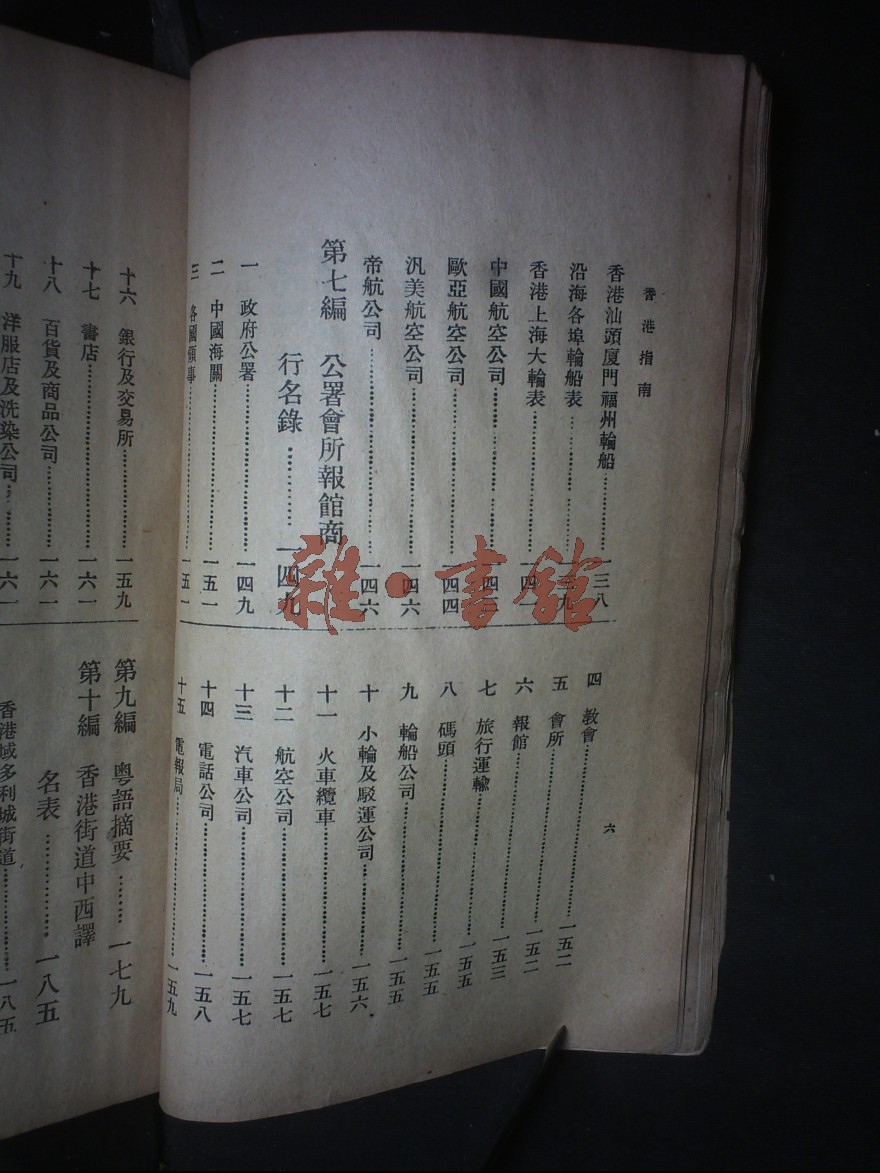 香港指南
香港汕頭廈門福州輪船…………一三八
沿海各埠輪船表…………一三九
香港上海大輪表…………一四
中國航空公司…………一四
歐亞航空公司…………一四四
汎美航空公司…………一四六
帝航公司…………一四六
第七編 公署會所報館商
行名錄…………一四九
一 政府公署…………一四九
二 中國海關…………一五一
三 各國領事…………一五一
六
四 教會…………一五二
五 會所…………一五二
六 報館…………一五三
七 旅行運輸…………一五五
八 碼頭…………一五五
九 輪船公司…………一五五
十 小輪及駁運公司…………一五六
十一 火車纜車…………一五七
十二 航空公司…………一五七
十三 汽車公司…………一五七
十四 電話公司…………一五八
十五 電報局…………一五九
十六 銀行及交易所…………一五九
十七 書店…………一六一
十八 百貨及商品公司…………一六一
十九 洋服店及洗染公司…………一六一
第九編 粵語摘要…………一七九
第十編 香港街道中西譯
名表…………一八五
香港域多利城街道…………一八五
雜·書館